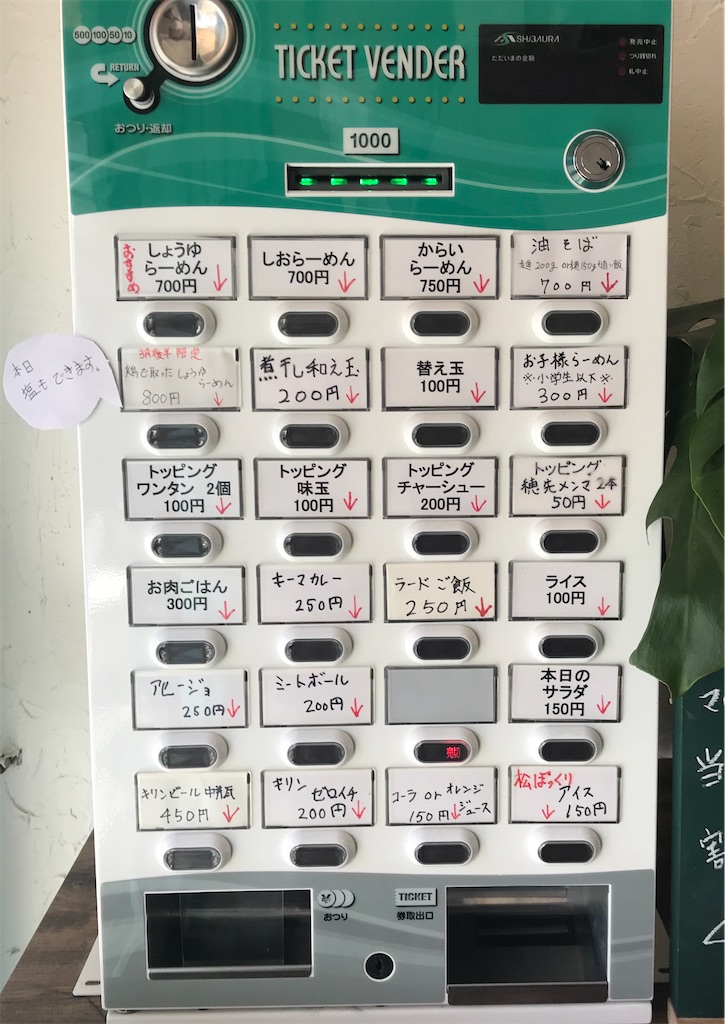 500 100 50 10
RETURN
おつり・返却
TICKET VENDER
SHIBAURA
ただいまの金額
発売中止
つり銭切れ
札中止
1000
おすすめ
しょうゆ
らーめん
700円
しおらーめん
700円
からい
らーめん
750円
油そば
200g or 150g 追い飯
700円
本日
塩もできます。
限定
鶏で取ったしょうゆ
らーめん
800円
煮干し和え玉
200円
替え玉
100円
お子様らーめん
※小学生以下※
300円
トッピング
ワンタン 2個
100円
トッピング
味玉
100円
トッピング
チャーシュー
200円
トッピング
穂先メンマ 2本
50円
お肉ごはん
300円
キーマカレー
250円
ラードご飯
250円
ライス
100円
アヒージョ
250円
ミートボール
200円
本日の
サラダ
150円
売切
キリンビール 中瓶
450円
キリン
ゼロイチ
200円
コーラ or オレンジ
ジュース
150円
松ぼっくり
アイス
150円
おつり
TICKET
券取出口
マ
当
割